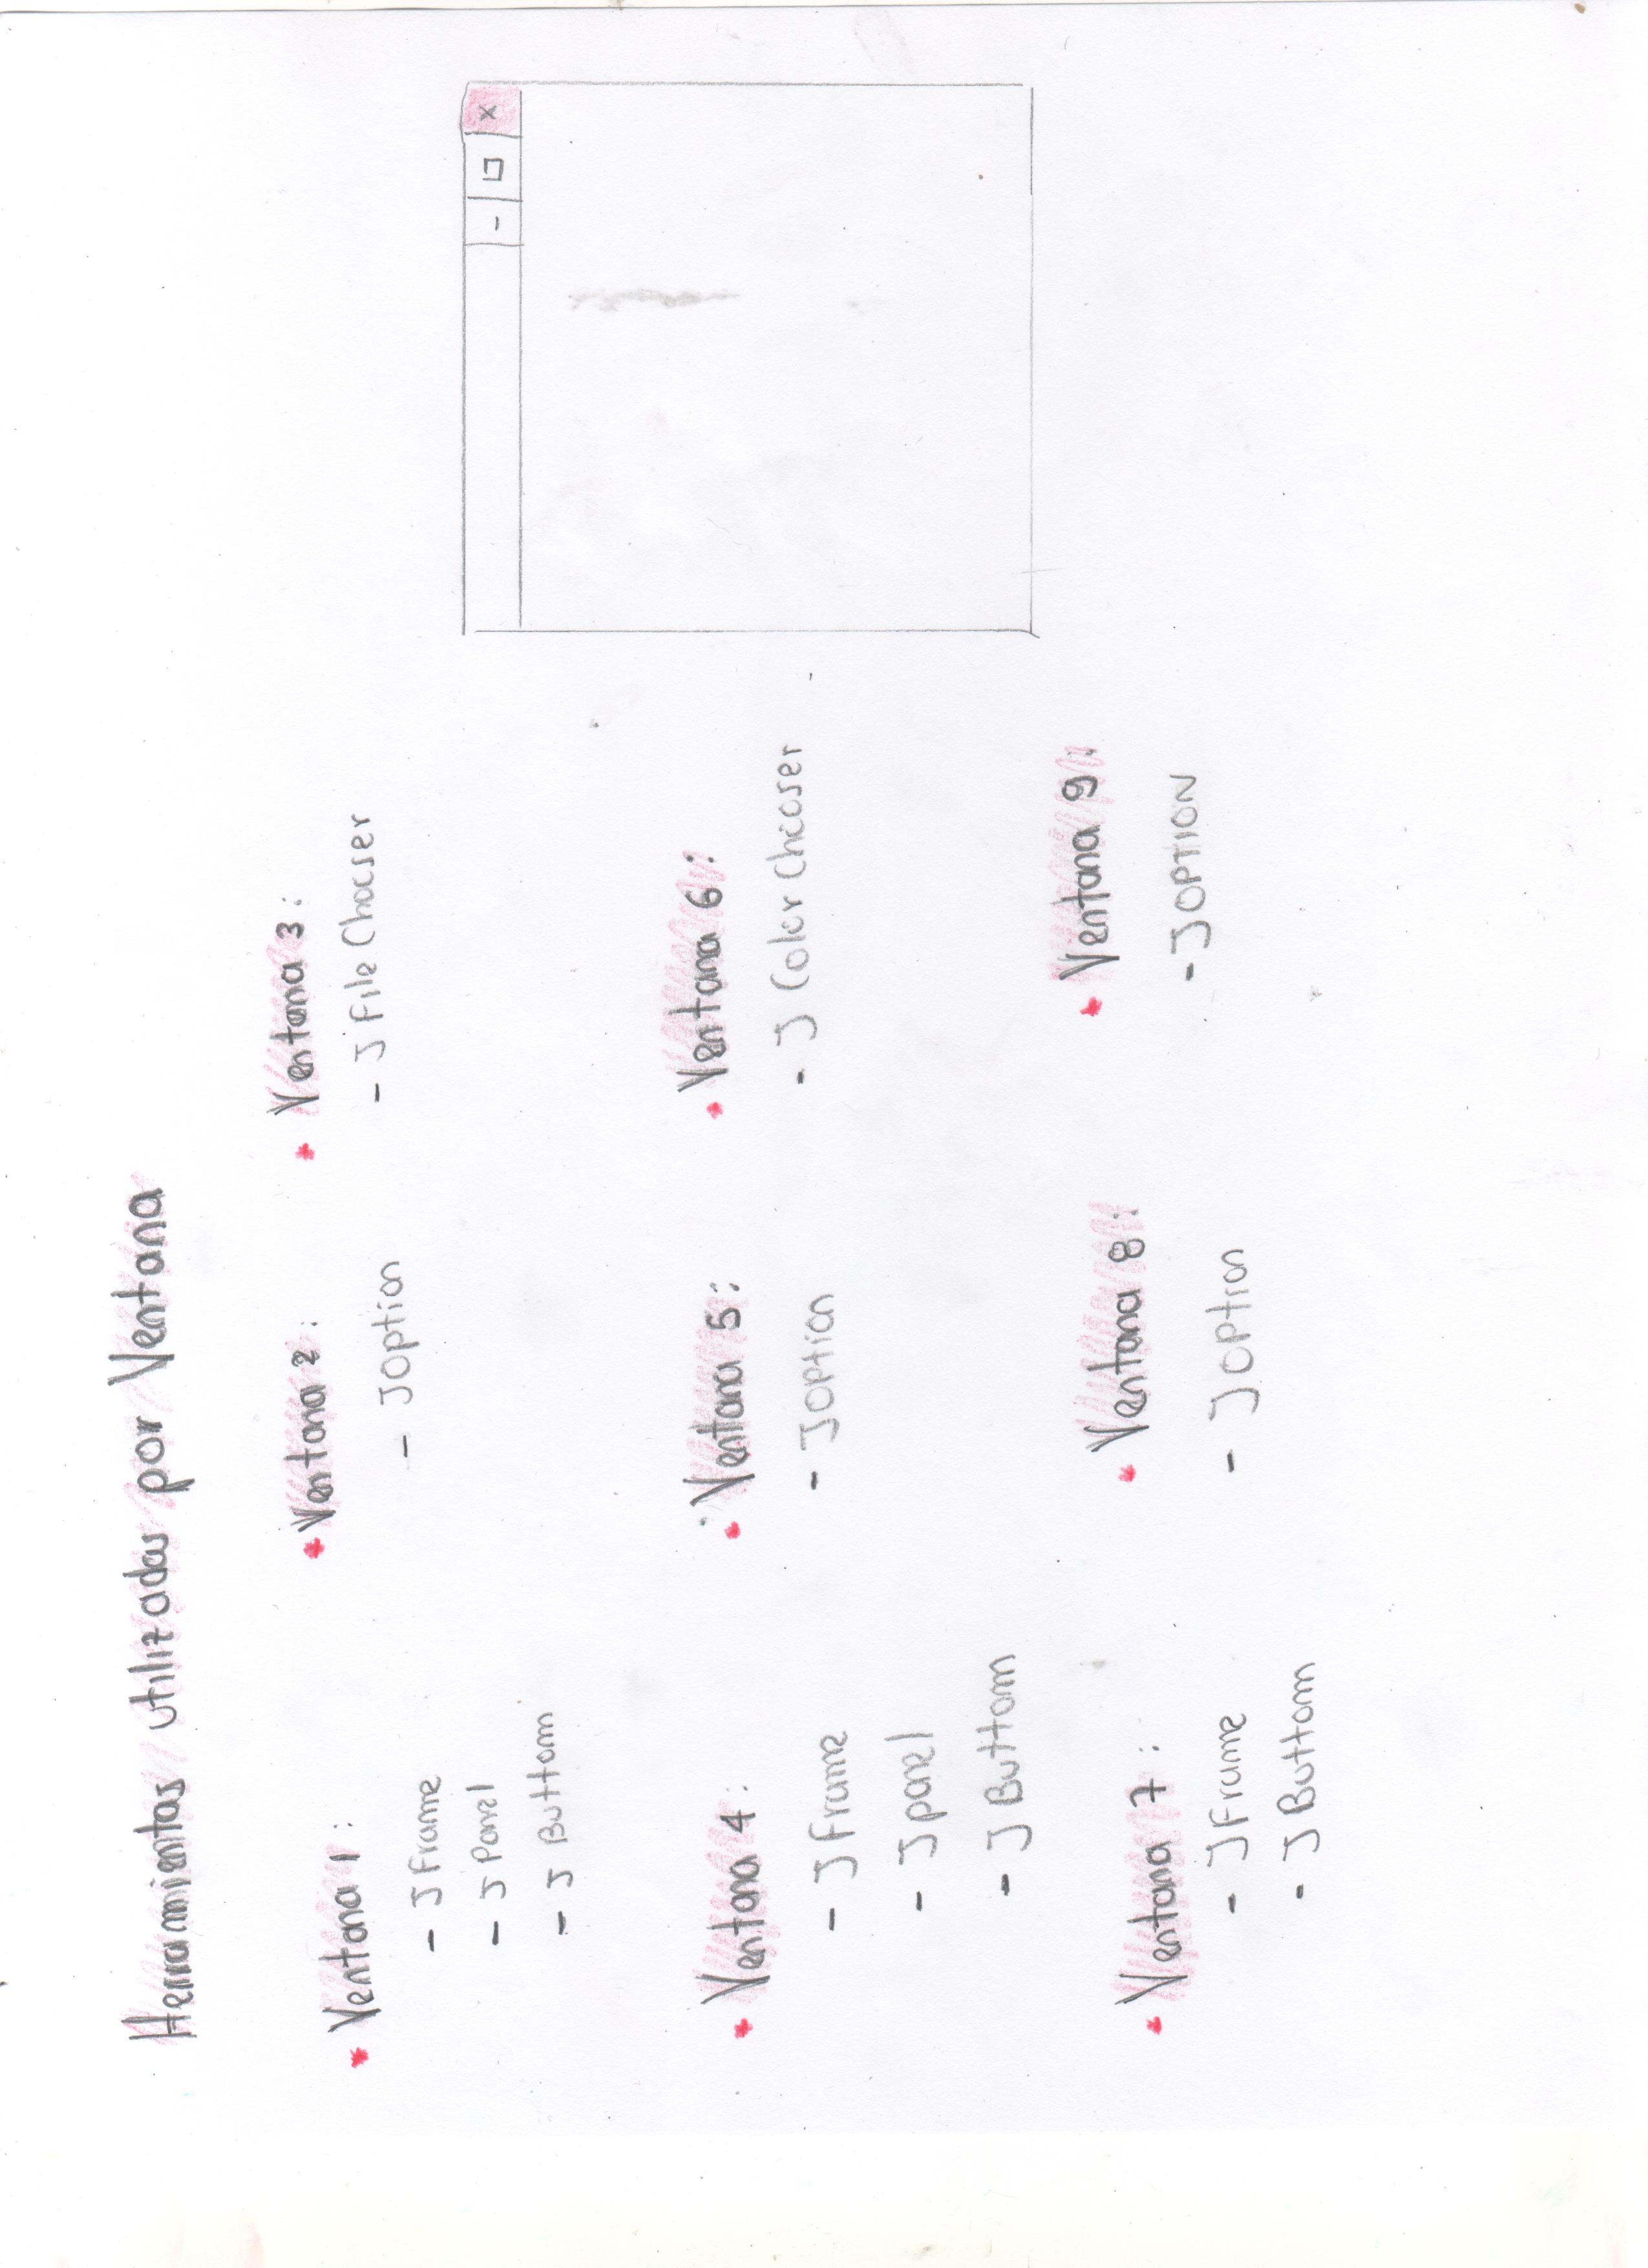 Herramientas utilizadas por Ventana
• Ventana 1:
- J Frame
- J Panel
- J Buttom
• Ventana 2:
- JOption
• Ventana 3:
- J File Chooser
• Ventana 4:
- J Frame
- J panel
- J Buttom
• Ventana 5:
- JOption
• Ventana 6:
- J Color Chooser
• Ventana 7:
- J Frame
- J Buttom
• Ventana 8:
- JOption
• Ventana 9:
- JOPTION
- □ x